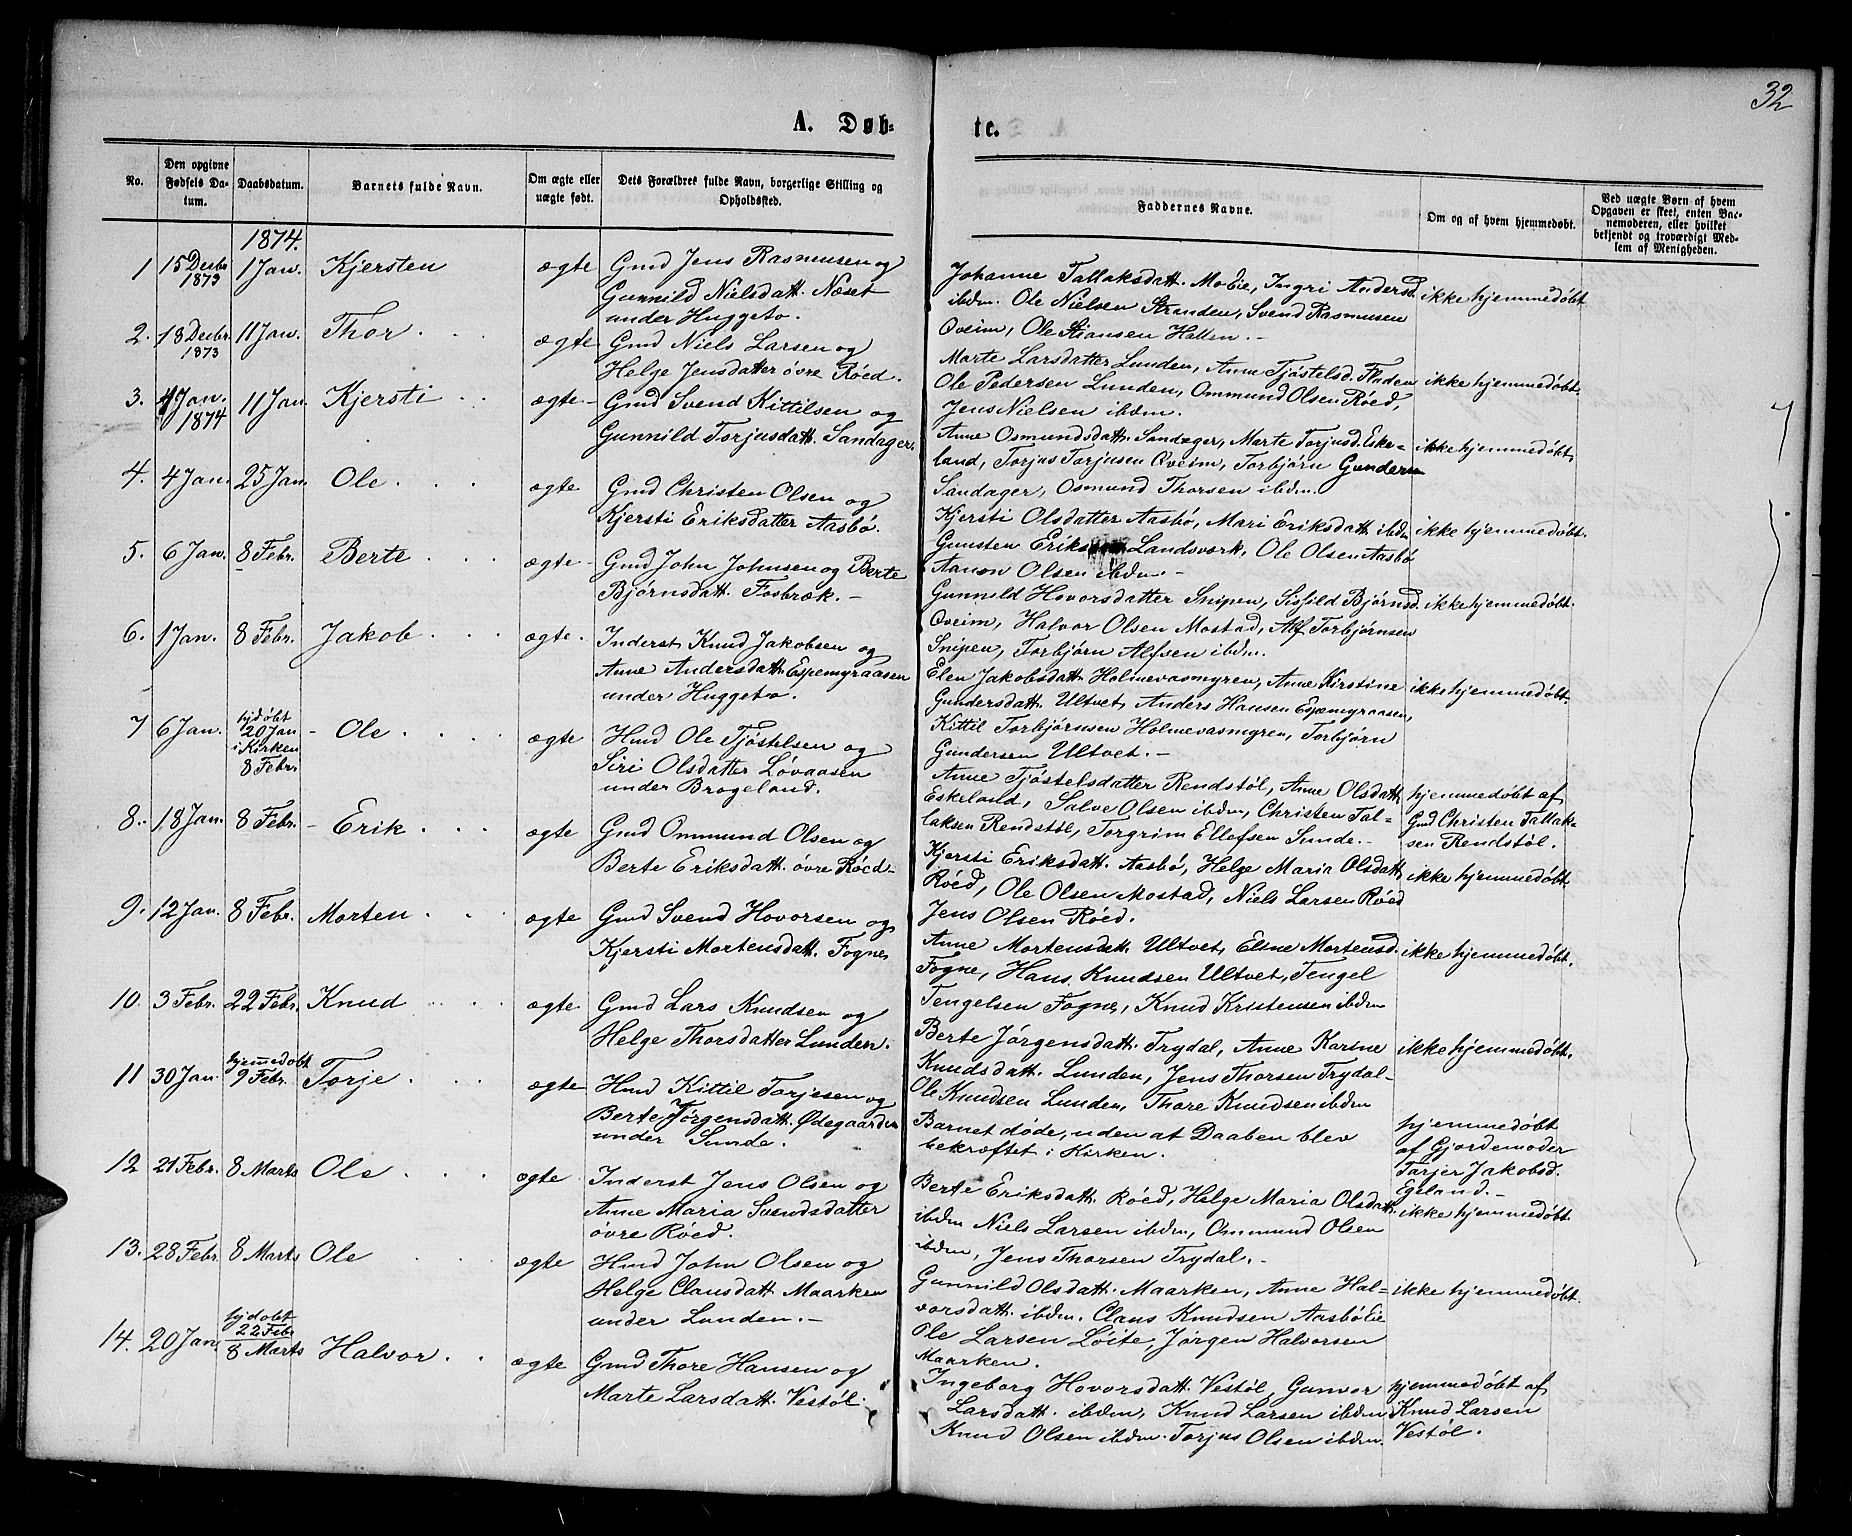 32
A. Døbte.
No.
Den opgivne Fødsels Datum.
Daabsdatum.
Barnets fulde Navn.
Om ægte eller uægte født.
Dets Forældres fulde Navn, borgerlige Stilling og Opholdssted.
Faddernes Navne.
Om og af hvem hjemmedøbt.
Ved uægte Børn af hvem Opgaven er skeet, enten Barnemoderen, eller hvilket bekjendt og troværdigt Medlem af Menigheden.
1874.
1 15 Decbr 1873 1 Jan. Kjersten ægte Gmd Jens Rasmussen og
Gunnild Nielsdatt. Næset
under Huggeto.
Johanne Tallaksdatt. Moeie, Ingri Andersd.
ibdm. Ole Nielsen Stranden, Svend Rasmusen
Oveim, Ole Stiansen Hallen.-
ikke hjemmedøbt
2. 18 Decbr. 1873 11 Jan. Thor ægte Gmd Niels Larsen og
Helge Jensdatter øvre Röed.
Marte Larsdatter Lunden, Anne Tjöstelsd. Fladen
Ole Pedersen Lunden, Ommund Olsen Röed,
Jens Nielsen ibdm.
ikke hjemmedøbt.
3. 4 Jan. 1874 11 Jan Kjersti ægte- Gmd Svend Kittilsen og
Gunnild Torjusdatt. Sandager.
Anne Osmundsdatt. Sandager, Marte Torjusd. Eske-
land, Torjus Torjusen Oveim, Torbjørn Gundersen
Sandager, Osmund Thorsen ibdm.
ikke hjemmedøbt.
4. 4 Jan. 25 Jan. Ole ægte Gmd Christen Olsen og
Kjersti Eriksdatter Aasbö.
Kjersti Olsdatter Aasbö, Mari Eriksdatt. ibdm
Gunsten Eriksen Landsverk, Ole Olsen Aasbö
Aanon Olsen ibdm.-
ikke hjemmedøbt.
5. 6 Jan. 8 Febr. Berte ægte- Gmd John Johnsen og Berte
Bjørnsdatt. Fosbræk.-
Gunnild Hovorsdatter Snipen, Sissild Bjørnsd.
Oveim, Halvor Olsen Mostad, Alf Torbjørnsen
Snipen, Torbjörn Alfsen ibdm.
ikke hjemmedøbt.
6. 1 Jan. 8 Febr. Jakob ægte. Inderst Knud Jakobsen og
Anne Andersdatt. Espemyraasen
under Huggeto.
Elen Jakobsdatt. Holmevasmyren, Anne Kirstine
Gundersdatt. Ultvet, Anders Hansen Espemyraasen,
Kittil Torbjørnsen Holmevasmyren, Torbjørn
Gundersen Ultvet.-
ikke hjemmedøbt.
7 6 Jan. hjdøbt 20 Jan i Kirken 8 Febr. Ole ægte Hmd Ole Tjöstelsen og
Siri Olsdatter Lövaasen
under Brogeland.
Anne Tjöstelsdatter Rendstöl, Anne Olsdatt.
Eskeland, Salve Olsen ibdm, Christen Tal-
laksen Rendstöl, Torgrim Ellefsen Sunde.-
hjemmedøbt af
Gmd Christen Tallak-
sen Rendstöl.
8. 18 Jan. 8 Febr. Erik ægte Gmd Ommund Olsen og
Berte Eriksdatt. øvre Röed-
Kjersti Eriksdatt. Aasbö, Helge Maria Olsdatt.
Röed, Ole Olsen Mostad, Niels Larsen Röed
Jens Olsen Röed.
ikke hjemmedøbt
9. 12 Jan. 8 Febr. Morten ægte Gmd Svend Hovorsen og
Kjersti Mortensdatt. Fogne
Anne Mortensdatt. Ultvet, Elene Mortensd.
Fogne, Hans Knudsen Ultvet, Tengel
Tengelsen Fogne, Knud Kristensen ibdm
ikke hjemmedøbt.
10. 3 Febr. 22 Febr. Knud ægte Gmd Lars Knudsen og
Helge Thorsdatter Lunden.
Berte Jørgensdatt. Trydal, Anne Karine
Knudsdatt. Lunden, Jens Thorsen Trydal-
Ole Knudsen Lunden, Thore Knudsen ibdm
ikke hjemmedøbt.
11 30 Jan hjemmedøbt 9 Febr. Torje ægte Hmd Kittil Torjesen og
Berte Jørgensdatt. Ødegaarden
under Sunde.
Barnet døde, uden at Daaben blev
bekræftet i Kirken.
hjemmedøbt
af Gjordemoder
Tarjer Jakobsd.
Egeland.-
12 21 Febr. 8 Marts Ole ægte Inderst Jens Olsen og
Anne Maria Svendsdatter
øvre Röed.
Berte Eriksdatt. Röed, Helge Maria Olsdatt.
ibdm Niels Larsen ibdm, Ommund Olsen
ibdm, Jens Thorsen Trydal.-
ikke hjemmedøbt.
13. 28 Febr. 8 Marts Ole ægte Hmd John Olsen og
Helge Clausdatt. Maarken
under Lunden.-
Gunnild Olsdatt. Maarken, Anne Hal-
vorsdatt. ibdm. Claus Knudsen Aasböeie
Ole Larsen Löite, Jørgen Halvorsen
Maarken.
ikke hjemmedøbt.
14. 20 Jan. hjdøbt 22 Febr 8 Marts Halvor ægte Gmd Thore Hansen og
Marte Larsdatt. Vestöl.
Ingeborg Hovorsdatt. Vestöl, Gunvor
Larsdatt. ibdm, Knud Larsen ibdm
Knud Olsen ibdm. Torjus Olsen ibdm.
hjemmedøbt af
Knud Larsen
Vestöl.